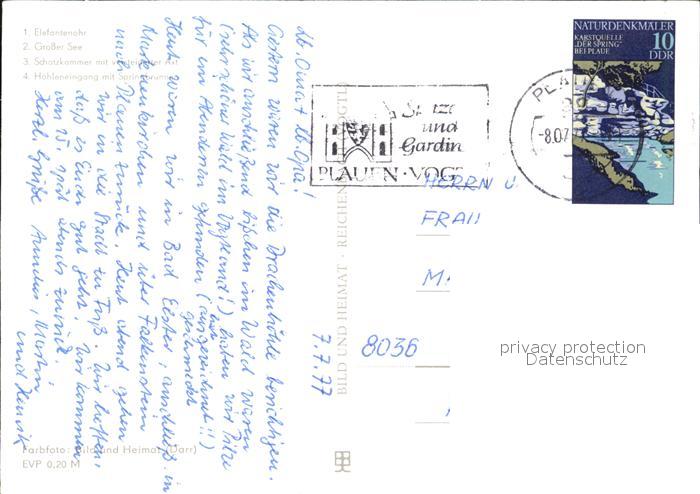 1. Elefantenohr
2. Großer See
3. Schatzkammer mit versteinerter Art
4. Höhleneingang mit Springbrunnen
lb. Oma + lb. Opa!
Gestern waren wir die Drachenhöhle besichtigen.
Als wir anschließend bißchen im Wald waren
(sehr schöner Wald im Vogtland!), haben wir Pilze
für ein Abendessen gefunden (ausgezeichnet
hat geschmeckt!!)
Heute waren wir in Bad Elster, anschließ. in
Markneukirchen und über Falkenstein
nach Plauen zurück. Heut abend gehen
wir in die Stadt zu Fuß. Wir hoffen,
daß es Euch gut geht. Wir kommen
am spät abends zurück.
Herzl. Grüße Martin
und Henrik
7.7.77
Farbfoto: Bild und Heimat (Darr)
EVP 0,20 M
BILD UND HEIMAT · REICHENBACH VOGTL
Spitzen
und
Gardinen
PLAUEN · VOGTL
PLAUEN
-8.07.7
NATURDENKMÄLER
KARSTQUELLE
"DER SPRING"
BEI PLAUE
10
DDR
HERRN U
FRAU
M
8036
privacy protection
Datenschutz